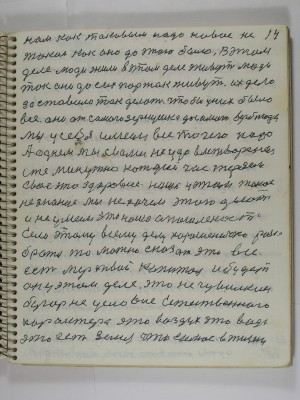 нам как таковым надо новое не 14
такое как оно до этого было, в этом
деле люди жили в этом деле живут люди
так они до сих пор так живут. их дело
заставило так делать. чтобы у них было
все. они от самого
мы у себя имели все то чего надо
А одним мы с вами не удовлетворены
мы минутно который час теряем
свое это здоровие. наше у этом такое
незнание мы не хочем этого делать
и не умеем это наша отсталость
Если этому всему делу хорошенько раз-
браться то можно сказать это все
есть мертвой капитал и будет
он у этом деле, это не чувилкин
бугор не условие Естественного
характера это воздух это вода
это есть земля что самое в жизни